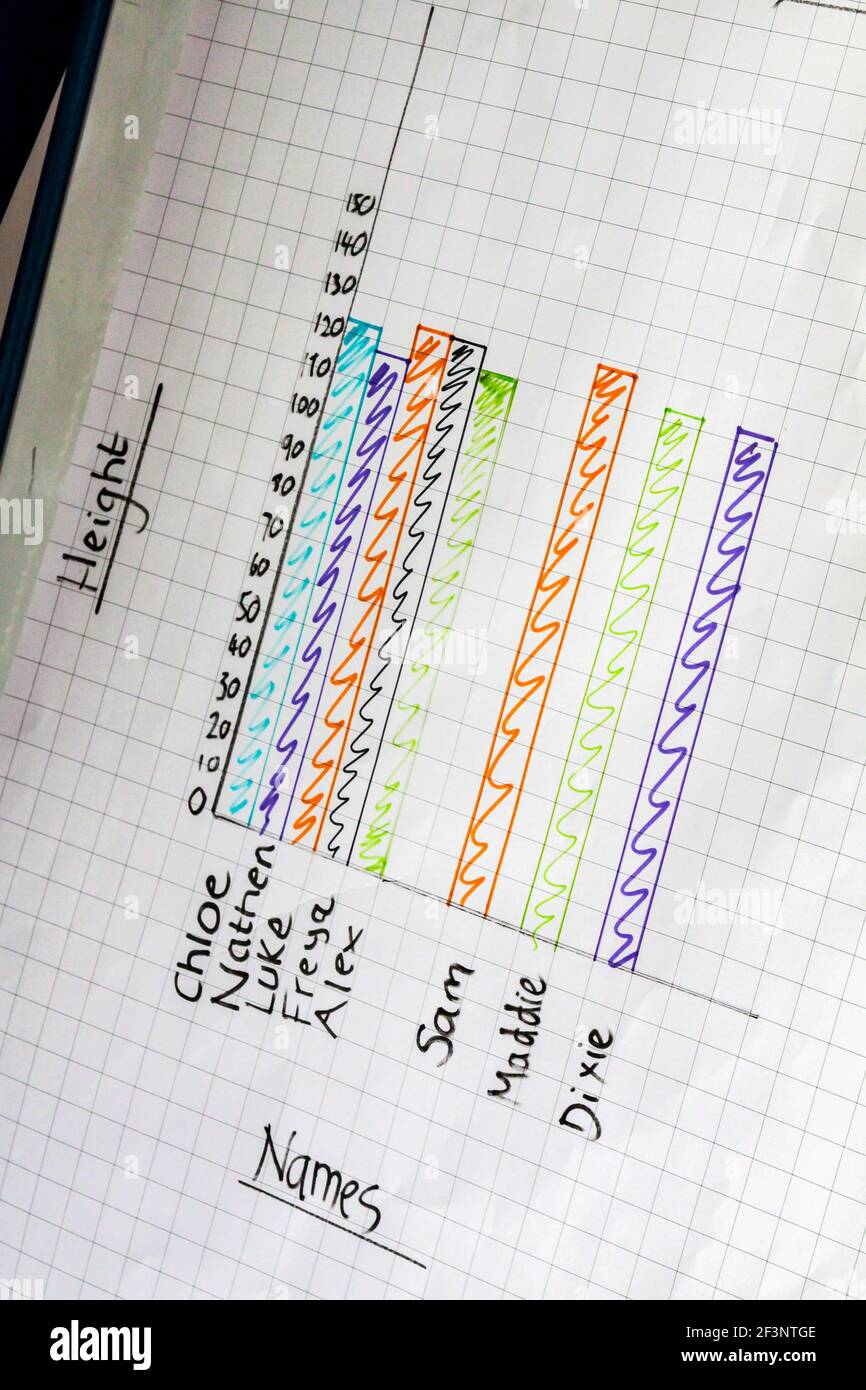 150
140
130
120
110
100
90
80
70
60
50
40
30
20
10
0
Height
Chloe
Nathen
Luke
Freya
Alex
Sam
Maddie
Dixie
Names
alamy
alamy
Image ID: 2F3NTGE
www.alamy.com